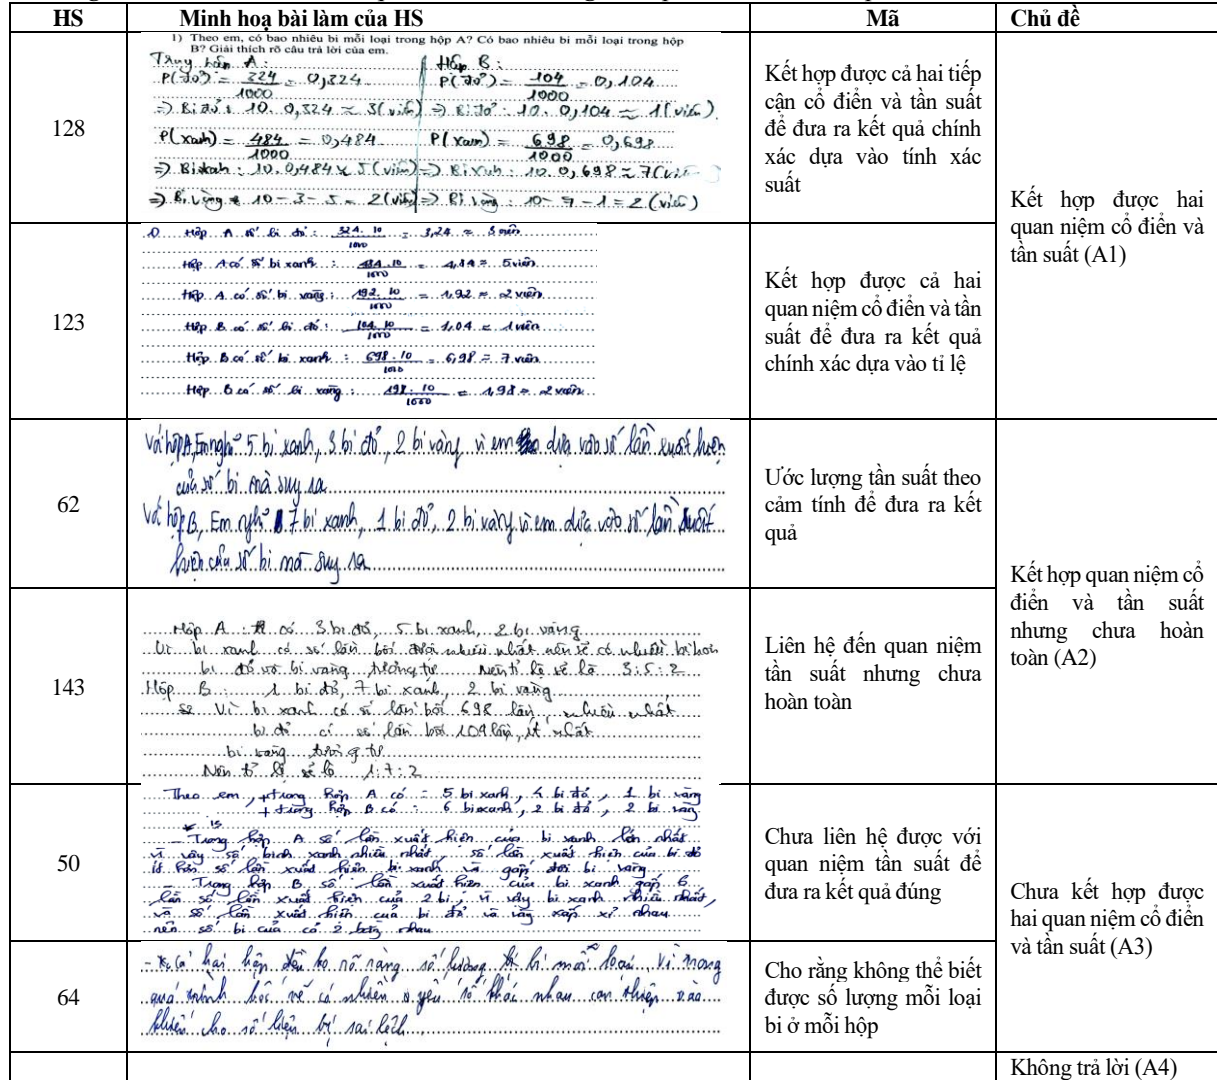 HS Minh hoạ bài làm của HS Mã Chủ đề
128
1) Theo em, có bao nhiêu bi mỗi loại trong hộp A? Có bao nhiêu bi mỗi loại trong hộp
B? Giải thích rõ câu trả lời của em.
Trong hộp A: Hộp B:
P(đỏ) = 324/1000 = 0,324 P(đỏ) = 104/1000 = 0,104
=> Bi đỏ: 10. 0,324 ≈ 3(viên) => Bi đỏ: 10. 0,104 ≈ 1(viên).
P(xanh) = 484/1000 = 0,484 P(xanh) = 698/1000 = 0,698
=> Bi xanh: 10. 0,484 ≈ 5(viên) => Bi xanh: 10. 0,698 ≈ 7(viên
=> Bi vàng = 10-3-5 = 2(viên) => Bi vàng: 10-7-1=2(viên)
Kết hợp được cả hai tiếp
cận cổ điển và tần suất
để đưa ra kết quả chính
xác dựa vào tính xác
suất
Kết hợp được hai
quan niệm cổ điển và
tần suất (A1)
123
Hộp A số bi đỏ: 324.10/1000 = 3,24 ≈ 3 viên
Hộp A có số bi xanh: 484.10/1000 = 4,84 ≈ 5 viên
Hộp A có số bi vàng: 192.10/1000 = 1,92 ≈ 2 viên
Hộp B có số bi đỏ: 104.10/1000 = 1,04 ≈ 1 viên
Hộp B có số bi xanh: 698.10/1000 = 6,98 = 7 viên
Hộp B có số bi vàng: 198.10/1000 = 1,98 ≈ 2 viên
Kết hợp được cả hai
quan niệm cổ điển và tần
suất để đưa ra kết quả
chính xác dựa vào tỉ lệ
62
Với hộp A, Em nghĩ 5 bi xanh, 3 bi đỏ, 2 bi vàng vì em dựa vào số lần xuất hiện
của số bi mà suy ra
Với hộp B, Em nghĩ 7 bi xanh, 1 bi đỏ, 2 bi vàng vì em dựa vào số lần xuất
hiện của số bi mà suy ra
Ước lượng tần suất theo
cảm tính để đưa ra kết
quả
Kết hợp quan niệm cổ
điển và tần suất
nhưng chưa hoàn
toàn (A2)
143
Hộp A: có 3 bi đỏ, 5 bi xanh, 2 bi vàng
Vì bi xanh có số lần bốc nhiều nhất nên sẽ có nhiều bi hơn
bi đỏ và bi vàng, tương tự Nên tỉ lệ sẽ là 3:5:2
Hộp B: 1 bi đỏ, 7 bi xanh, 2 bi vàng
Vì bi xanh có số lần bốc 698 lần, nhiều nhất
bi đỏ có số lần bốc 104 lần, ít nhất
bi vàng tương tự
Nên tỉ lệ sẽ là 1:7:2
Liên hệ đến quan niệm
tần suất nhưng chưa
hoàn toàn
50
Theo em, + trong hộp A có: 5 bi xanh, 4 bi đỏ, 1 bi vàng
+ trong hộp B có: 6 bi xanh, 2 bi đỏ, 2 bi vàng
- Trong hộp A số lần xuất hiện của bi xanh lớn nhất
vì vậy số bình xanh nhiều nhất, số lần xuất hiện của bi đỏ
ít hơn số lần xuất hiện bi xanh và gấp đôi bi vàng
- Trong hộp B số lần xuất hiện của bi xanh gấp 6
lần số lần xuất hiện của 2 bi, vì vậy bi xanh nhiều nhất,
và số lần xuất hiện của bi đỏ và vàng xấp xỉ nhau
nên số bi của cả 2 bằng nhau
Chưa liên hệ được với
quan niệm tần suất để
đưa ra kết quả đúng
Chưa kết hợp được
hai quan niệm cổ điển
và tần suất (A3)
64
hai hộp đều ko rõ ràng số lượng bi mỗi loại, vì trong
quá trình bốc về có nhiều yếu tố khác nhau can thiệp vào
khiến cho số liệu bị sai lệch.
Cho rằng không thể biết
được số lượng mỗi loại
bi ở mỗi hộp
Không trả lời (A4)